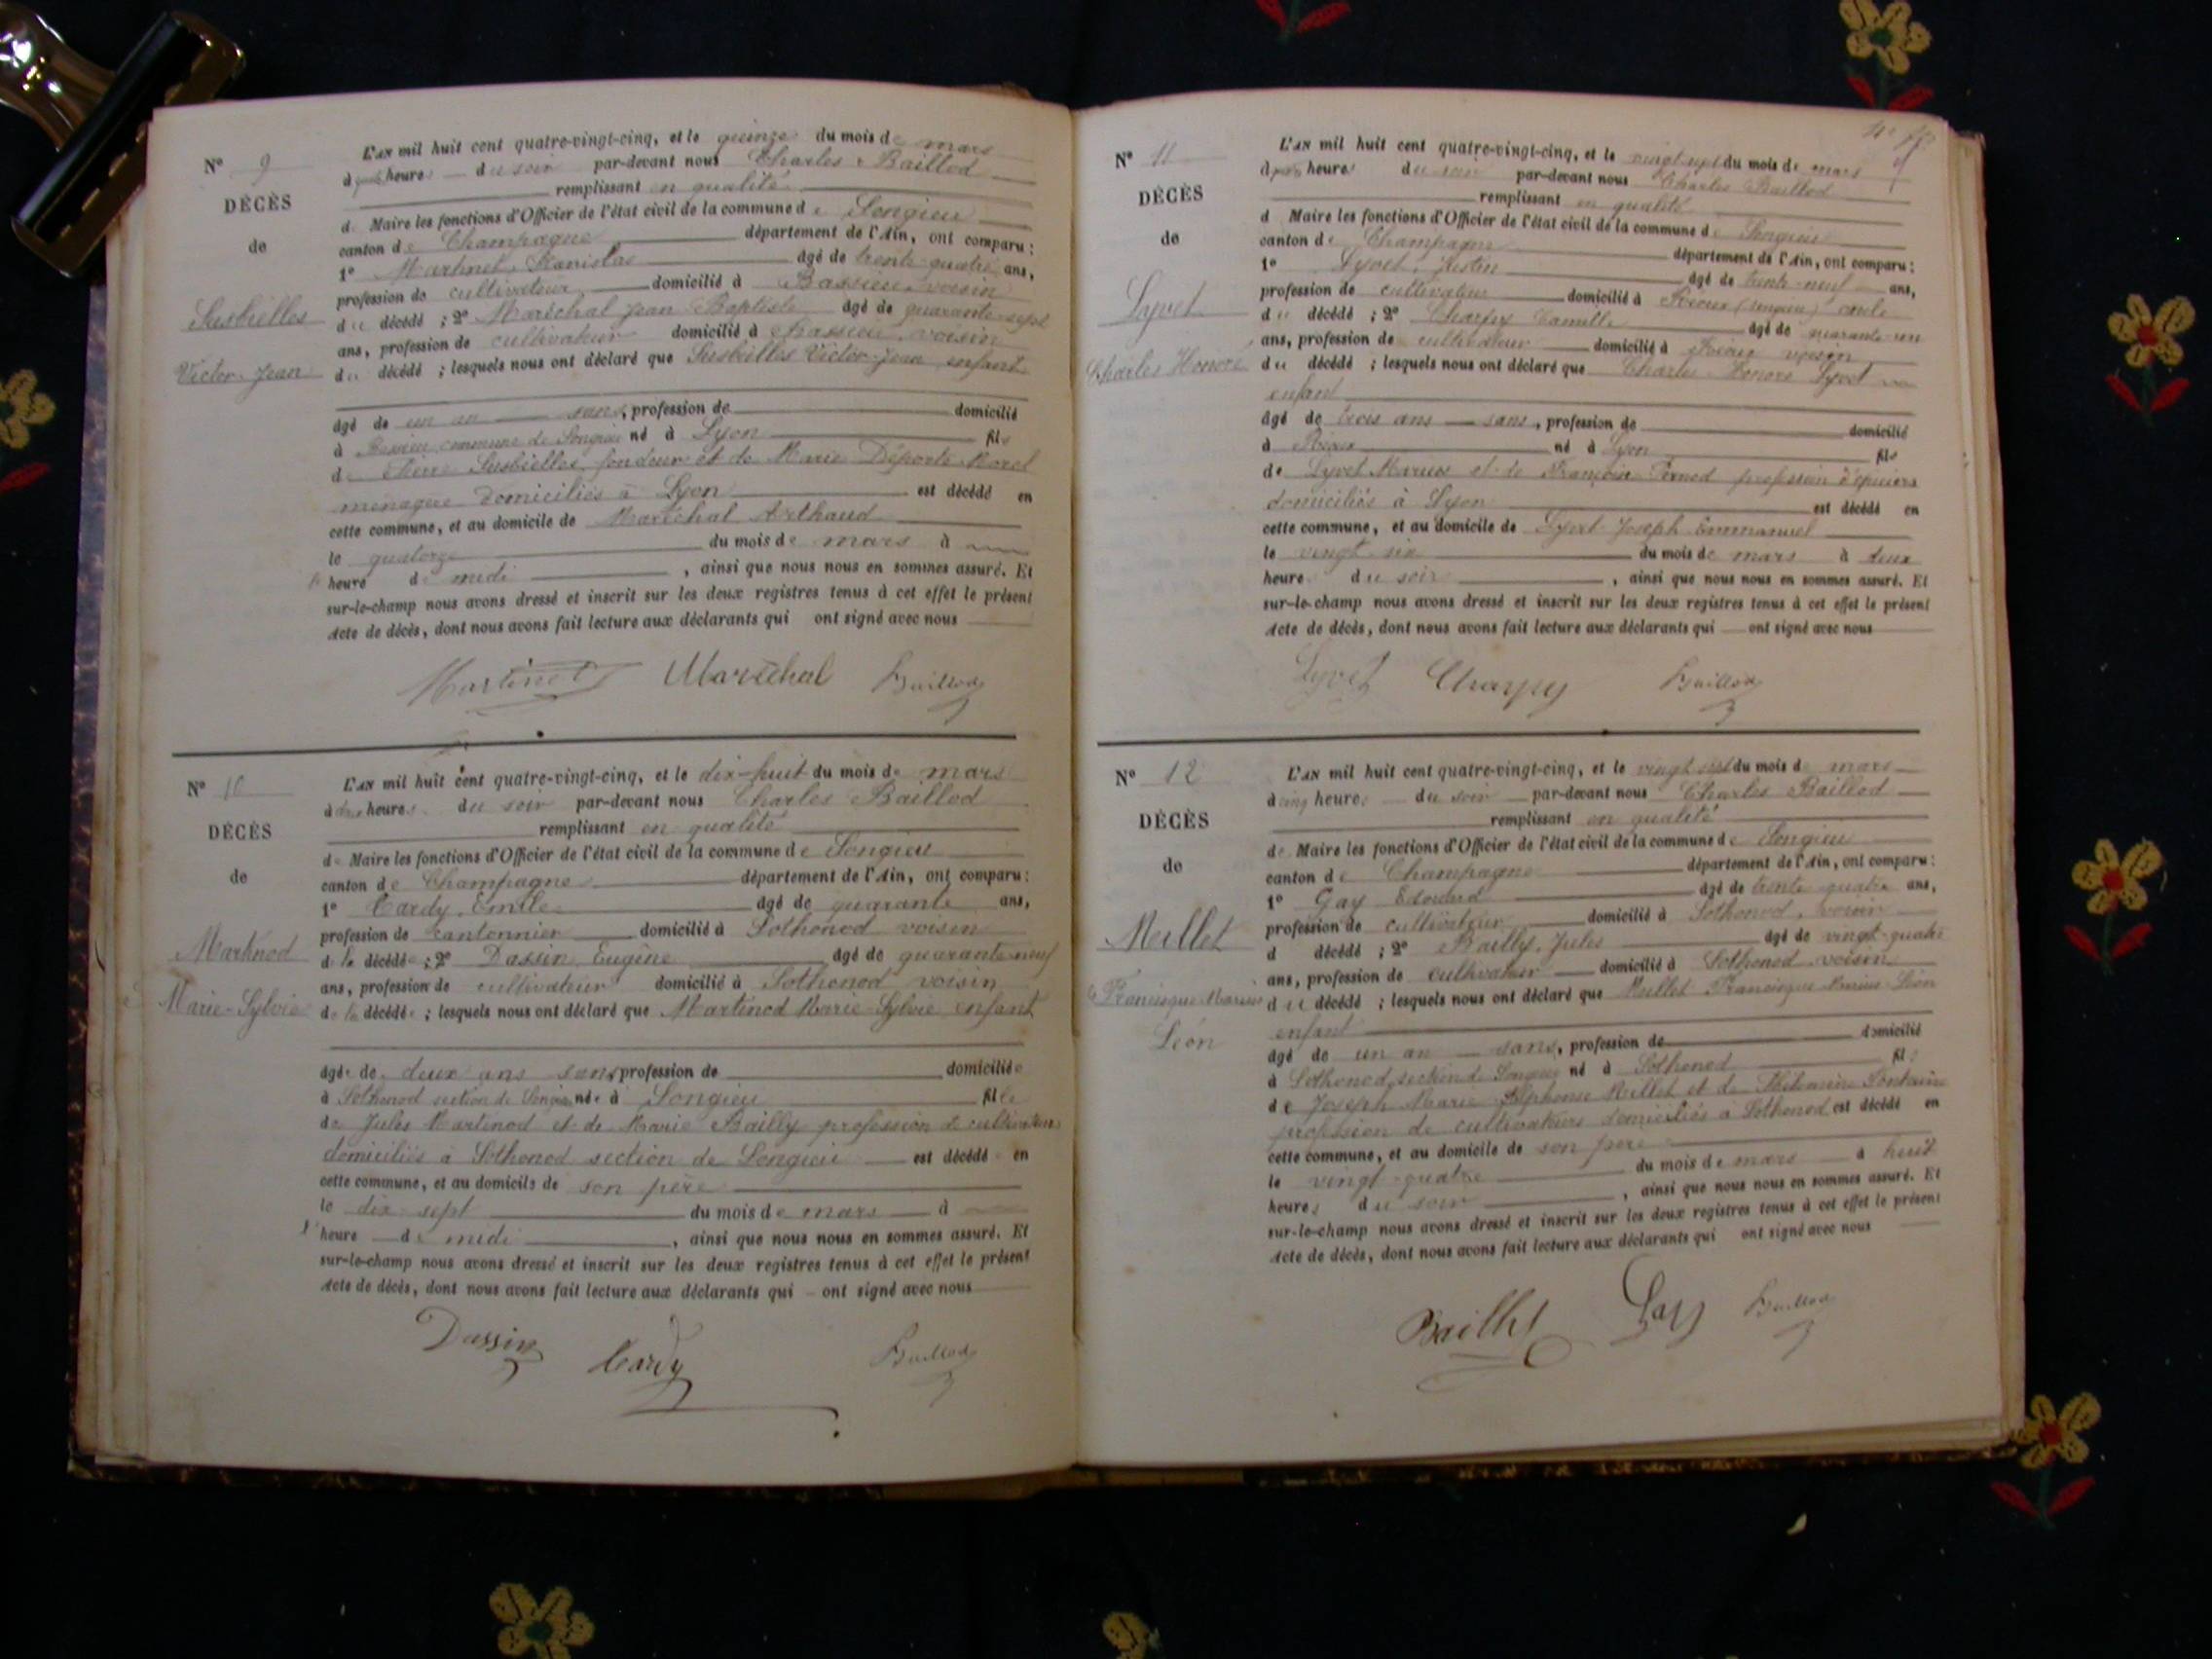 N° 9
DÉCÈS
de
Susbielles
Victor-Jean
L'AN mil huit cent quatre-vingt-cinq, et le quinze du mois de mars
à heures du soir par-devant nous Charles Baillod
remplissant en qualité
de Maire les fonctions d'Officier de l'état civil de la commune de Songieu
canton de Champagne département de l'Ain, ont comparu :
1° Martinet, Stanislas âgé de trente-quatre ans,
profession de cultivateur domicilié à Bassieu, voisin
du décédé ; 2° Maréchal Jean Baptiste âgé de quarante-sept
ans, profession de cultivateur domicilié à Bassieu, voisin
du décédé ; lesquels nous ont déclaré que Susbielles Victor-Jean, enfant
âgé de un an sans, profession de domicilié
à Bassieu commune de Songieu né à Lyon fils
de Pierre Susbielles, fondeur et de Marie Déporte Morel
ménagère domiciliés à Lyon est décédé en
cette commune, et au domicile de Maréchal Arthaud
le quatorze du mois de mars à
heure de midi , ainsi que nous nous en sommes assuré. Et
sur-le-champ nous avons dressé et inscrit sur les deux registres tenus à cet effet le présent
Acte de décès, dont nous avons fait lecture aux déclarants qui ont signé avec nous
Martinet Maréchal Baillod
N° 10
DÉCÈS
de
Martinod
Marie-Sylvie
L'AN mil huit cent quatre-vingt-cinq, et le dix-huit du mois de mars
à heures du soir par-devant nous Charles Baillod
remplissant en qualité
de Maire les fonctions d'Officier de l'état civil de la commune de Songieu
canton de Champagne département de l'Ain, ont comparu :
1° Cardy, Emile âgé de quarante ans,
profession de cantonnier domicilié à Sothonod voisin
de la décédée ; 2° Dassin Eugène âgé de quarante-neuf
ans, profession de cultivateur domicilié à Sothonod voisin
de la décédée ; lesquels nous ont déclaré que Martinod Marie-Sylvie enfant
âgée de deux ans sans, profession de domiciliée
à Sothonod section de Songieu née à Songieu fille
de Jules Martinod et de Marie Bailly profession de cultivateurs
domiciliés à Sothonod section de Songieu est décédée en
cette commune, et au domicile de son père
le dix sept du mois de mars à
heure de midi , ainsi que nous nous en sommes assuré. Et
sur-le-champ nous avons dressé et inscrit sur les deux registres tenus à cet effet le présent
Acte de décès, dont nous avons fait lecture aux déclarants qui ont signé avec nous
Dassin Cardy Baillod
N° 11
DÉCÈS
de
Lyvet
Charles Honoré
L'AN mil huit cent quatre-vingt-cinq, et le vingt-sept du mois de mars
à heures du soir par-devant nous Charles Baillod
remplissant en qualité
d Maire les fonctions d'Officier de l'état civil de la commune de Songieu
canton de Champagne département de l'Ain, ont comparu :
1° Lyvet, Justin âgé de trente-neuf ans,
profession de cultivateur domicilié à (Songieu) oncle
du décédé ; 2° Charpy Camille âgé de quarante-un
ans, profession de cultivateur domicilié à voisin
du décédé ; lesquels nous ont déclaré que Charles Honoré Lyvet
enfant
âgé de trois ans sans, profession de domicilié
à né à Lyon fils
de Lyvet Marius et de Françoise Pernod profession d'épiciers
domiciliés à Lyon est décédé en
cette commune, et au domicile de Lyvet Joseph Emmanuel
le vingt six du mois de mars à deux
heures du soir , ainsi que nous nous en sommes assuré. Et
sur-le-champ nous avons dressé et inscrit sur les deux registres tenus à cet effet le présent
Acte de décès, dont nous avons fait lecture aux déclarants qui ont signé avec nous
Lyvet Charpy Baillod
N° 12
DÉCÈS
de
Meillet
Francisque Marius
Léon
L'AN mil huit cent quatre-vingt-cinq, et le vingt sept du mois de mars
à cinq heures du soir par-devant nous Charles Baillod
remplissant en qualité
de Maire les fonctions d'Officier de l'état civil de la commune de Songieu
canton de Champagne département de l'Ain, ont comparu :
1° Gay Edouard âgé de trente quatre ans,
profession de cultivateur domicilié à Sothonod, voisin
d décédé ; 2° Bailly, Jules âgé de vingt-quatre
ans, profession de cultivateur domicilié à Sothonod voisin
du décédé ; lesquels nous ont déclaré que Meillet Francisque Marius Léon
enfant
âgé de un an sans, profession de domicilié
à Sothonod section de Songieu né à Sothonod fils
de Joseph Marie Alphonse Meillet et de Philomène Fontaine
profession de cultivateurs domiciliés à Sothonod est décédé en
cette commune, et au domicile de son père
le vingt-quatre du mois de mars à huit
heures du soir , ainsi que nous nous en sommes assuré. Et
sur-le-champ nous avons dressé et inscrit sur les deux registres tenus à cet effet le présent
Acte de décès, dont nous avons fait lecture aux déclarants qui ont signé avec nous
Bailly Gay Baillod